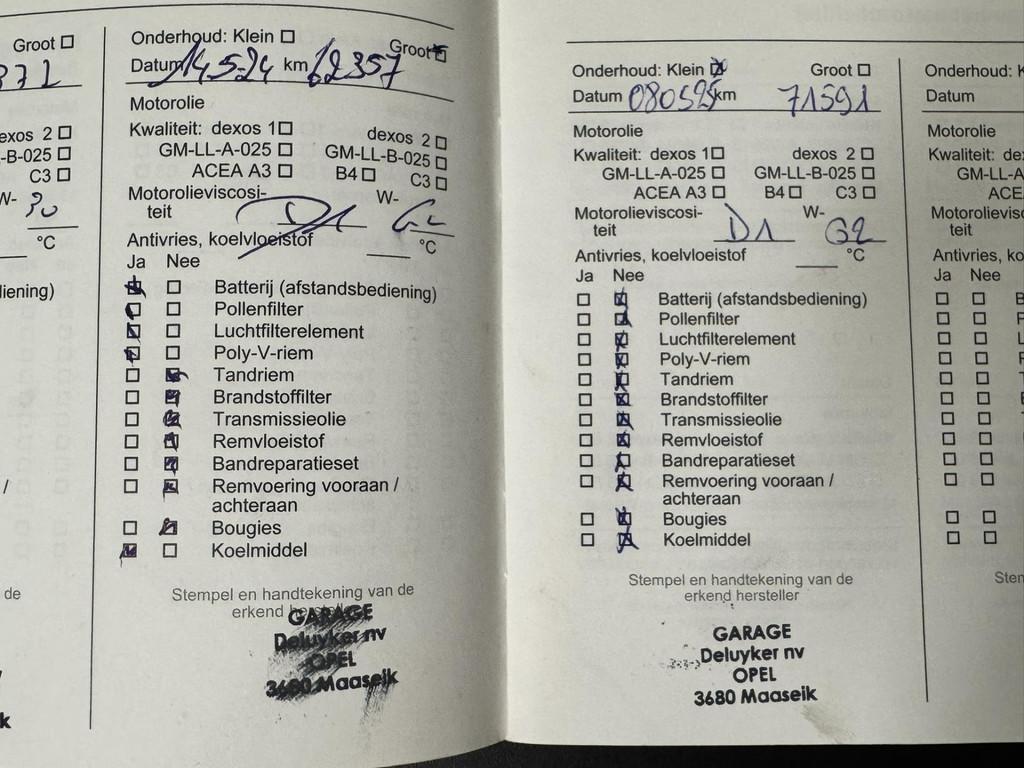 Groot ☐
372
exos 2 ☐
-B-025 ☐
C3 ☐
W-
30
°C
iening)
/
de
k
Onderhoud: Klein ☐ Groot ☒
Datum 14.5.24 km 62357
Motorolie
Kwaliteit: dexos 1 ☐ dexos 2 ☐
GM-LL-A-025 ☐ GM-LL-B-025 ☐
ACEA A3 ☐ B4 ☐ C3 ☐
Motorolieviscosi-
teit D1 W-
Antivries, koelvloeistof °C
Ja Nee
☒ ☐ Batterij (afstandsbediening)
☒ ☐ Pollenfilter
☒ ☐ Luchtfilterelement
☒ ☐ Poly-V-riem
☐ ☒ Tandriem
☐ ☒ Brandstoffilter
☐ ☒ Transmissieolie
☐ ☒ Remvloeistof
☐ ☒ Bandreparatieset
☐ ☒ Remvoering vooraan /
achteraan
☐ ☒ Bougies
☒ ☐ Koelmiddel
Stempel en handtekening van de
erkend hersteller
GARAGE
Deluyker nv
OPEL
3680 Maaseik
Onderhoud: Klein ☒ Groot ☐
Datum 080525 km 71591
Motorolie
Kwaliteit: dexos 1 ☐ dexos 2 ☐
GM-LL-A-025 ☐ GM-LL-B-025 ☐
ACEA A3 ☐ B4 ☐ C3 ☐
Motorolieviscosi-
teit D1 W- G2
Antivries, koelvloeistof °C
Ja Nee
☐ ☒ Batterij (afstandsbediening)
☐ ☒ Pollenfilter
☐ ☒ Luchtfilterelement
☐ ☒ Poly-V-riem
☐ ☒ Tandriem
☐ ☒ Brandstoffilter
☐ ☒ Transmissieolie
☐ ☒ Remvloeistof
☐ ☒ Bandreparatieset
☐ ☒ Remvoering vooraan /
achteraan
☐ ☒ Bougies
☐ ☒ Koelmiddel
Stempel en handtekening van de
erkend hersteller
GARAGE
Deluyker nv
OPEL
3680 Maaseik
Onderhoud: K
Datum
Motorolie
Kwaliteit: dex
GM-LL-A
ACE
Motorolievisc
teit
Antivries, ko
Ja Nee
Sten